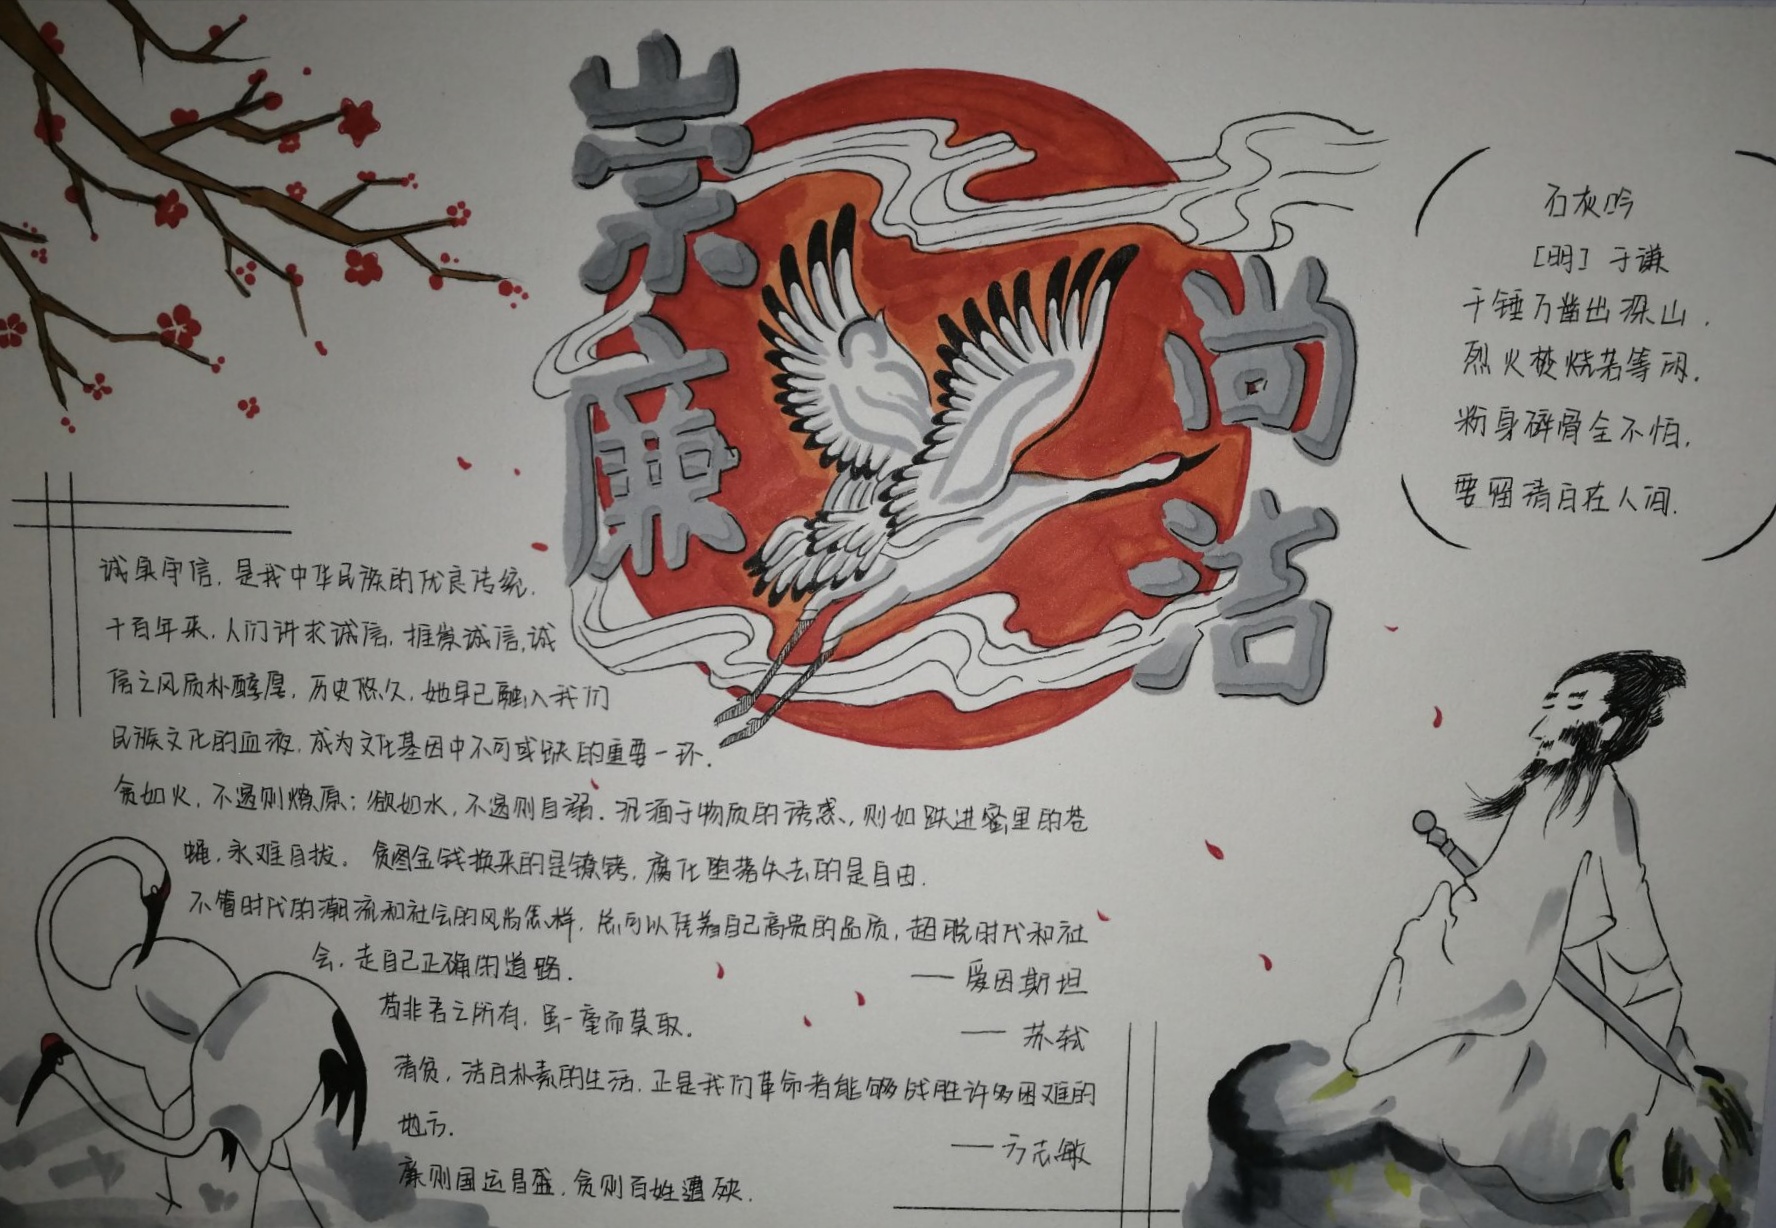 崇尚
廉洁
石灰吟
[明] 于谦
千锤万凿出深山.
烈火焚烧若等闲.
粉身碎骨全不怕,
要留清白在人间.
诚实守信,是我中华民族的优良传统.
千百年来,人们讲求诚信,推崇诚信,诚
信之风质朴醇厚,历史悠久,她早已融入我们
民族文化的血液,成为文化基因中不可或缺的重要一环.
贪如火,不遏则燎原;欲如水,不遏则自溺.沉湎于物质的诱惑,则如跌进蜜里的苍
蝇,永难自拔。贪图金钱换来的是镣铐,腐化堕落失去的是自由.
不管时代的潮流和社会的风尚怎样,总可以凭着自己高贵的品质,超脱时代和社
会,走自己正确的道路.
—— 爱因斯坦
苟非吾之所有,虽一毫而莫取.
—— 苏轼
清贫,洁白朴素的生活,正是我们革命者能够战胜许多困难的
地方.
—— 方志敏
廉则国运昌盛,贪则百姓遭殃.